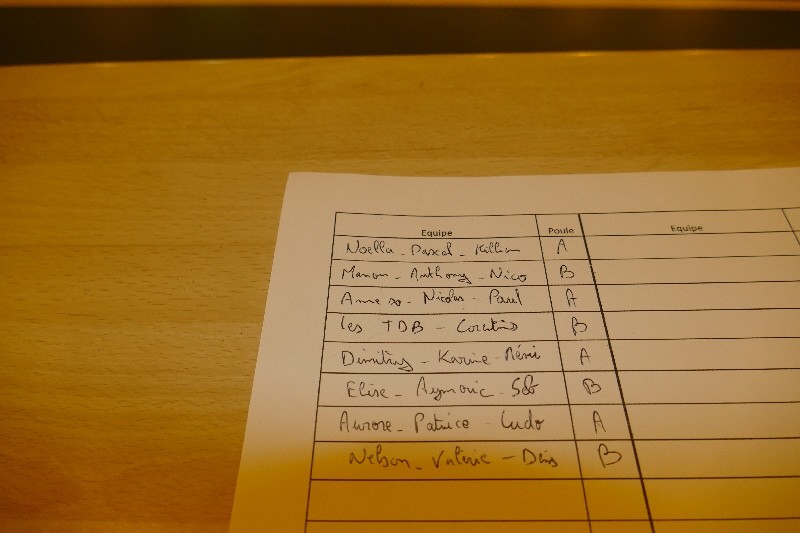 Equipe Poule Equipe
Noella - Pascal - Killian A
Manon - Anthony - Nico B
Anne so - Nicolas - Paul A
les TDB - B
Dimitry - Karine - Rémi A
Elise - Aymeric - Seb B
Aurore - Patrice - Ludo A
Nelson - Valérie - Denis B